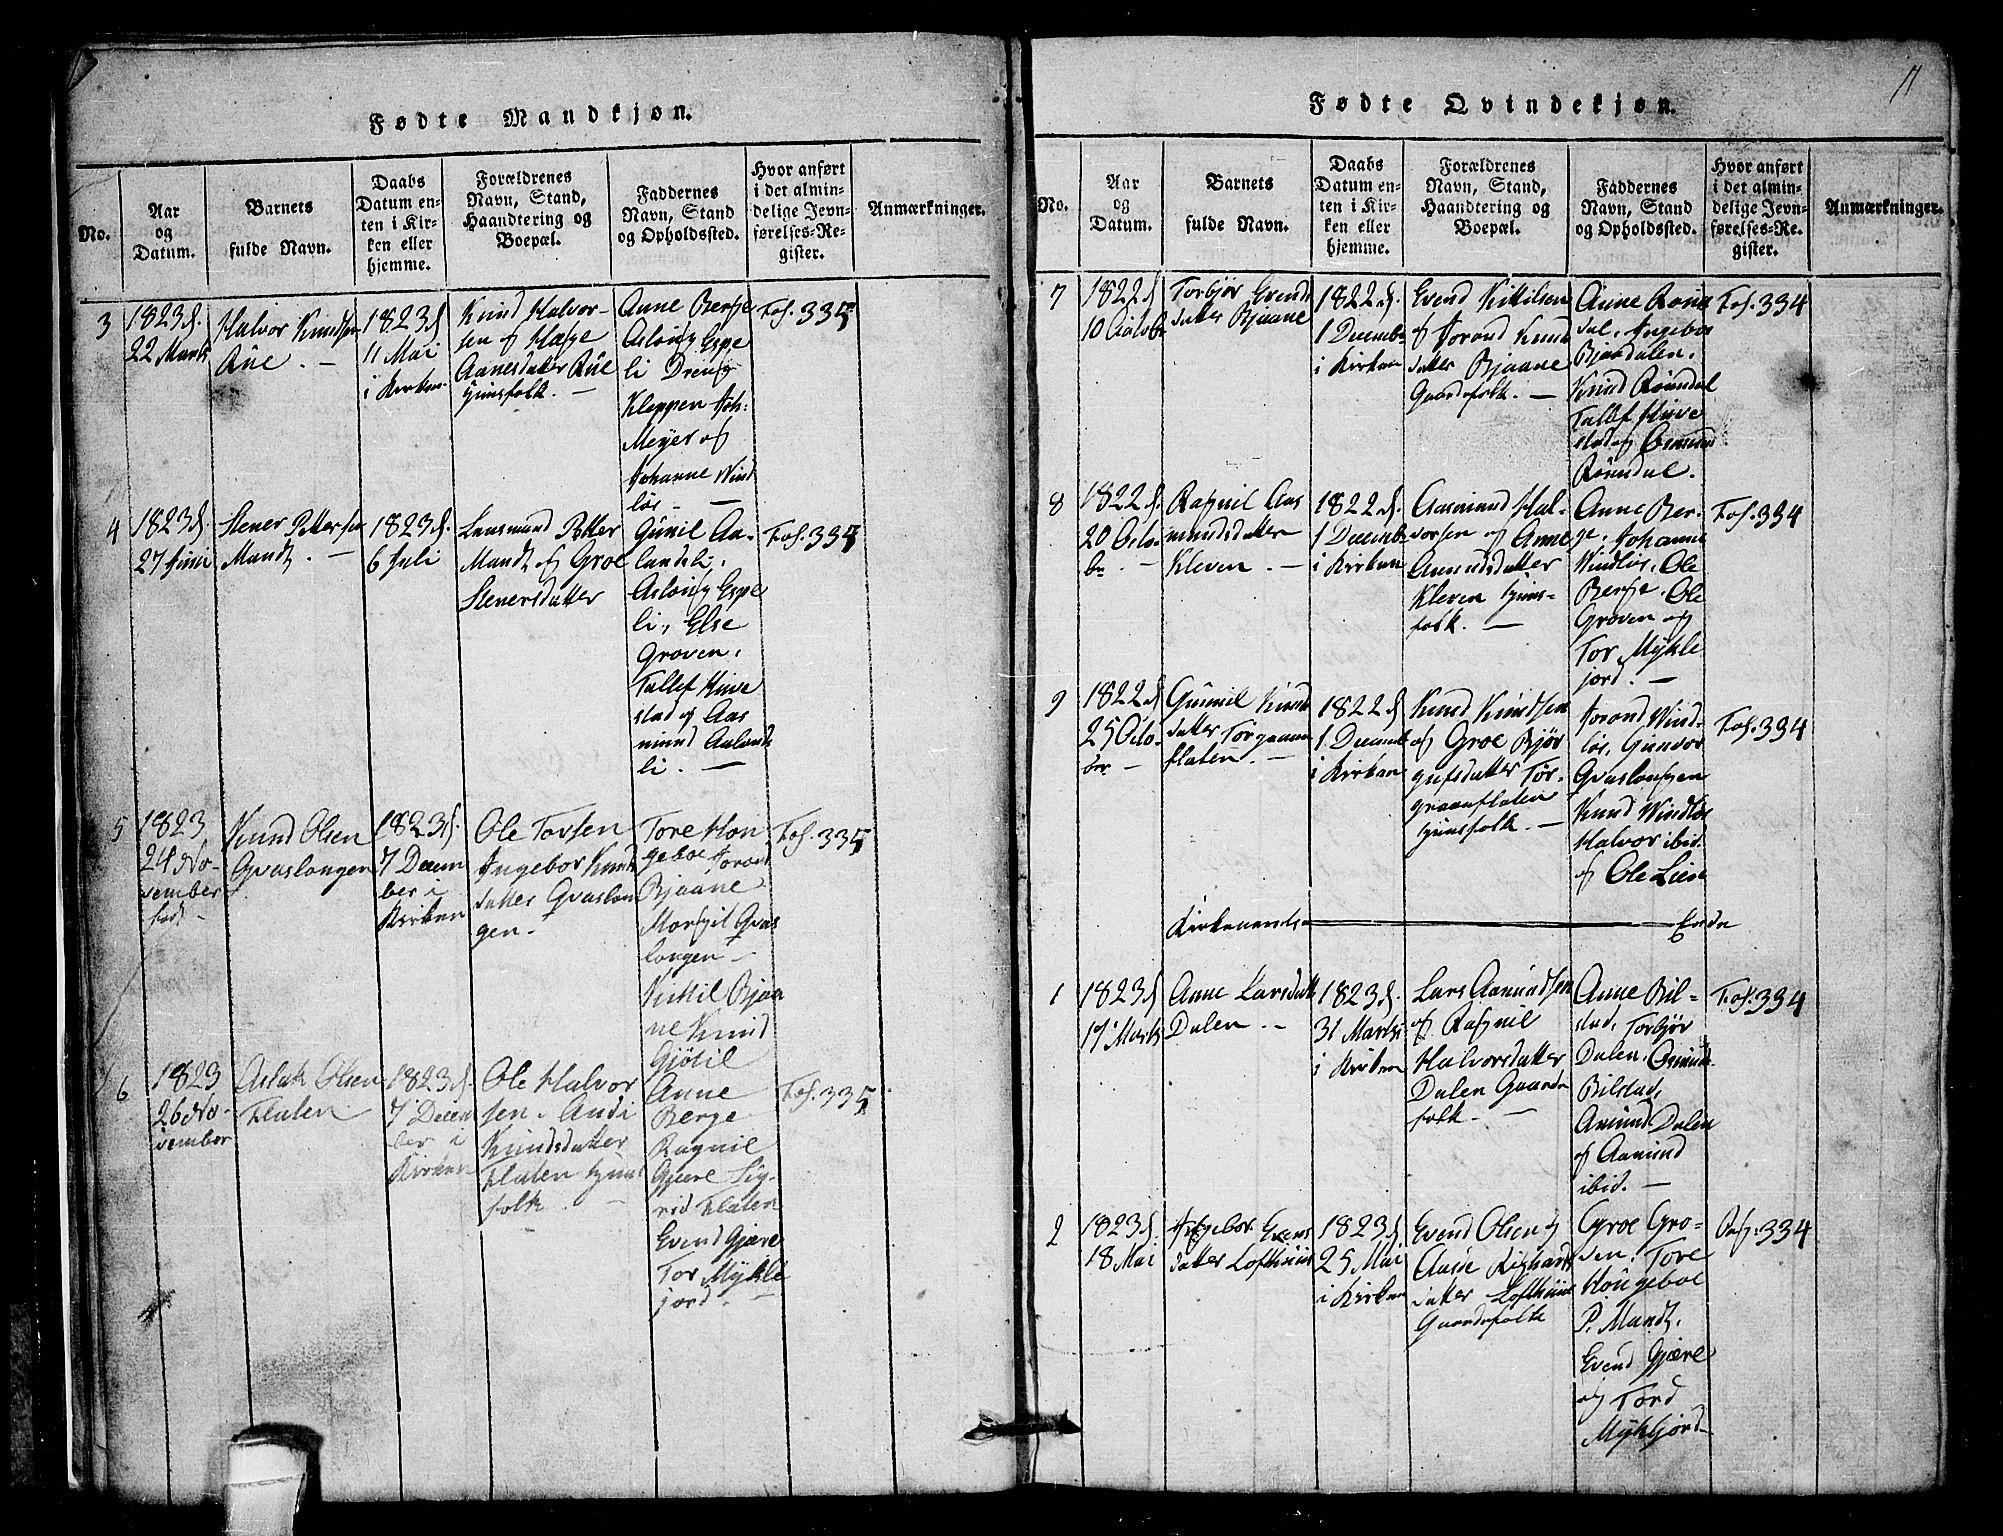 Fødte Mandkjøn.
No.
Aar
og
Datum.
Barnets
fulde Navn.
Daabs
Datum en-
ten i Kir-
ken eller
hjemme.
Forældrenes
Navn, Stand,
Haandtering og
Boepæl.
Faddernes
Navn, Stand
og Opholdssted.
Hvor anført
i det almin-
delige Jevn-
førelses-Re-
gister.
Anmærkninger.
3
1823 d.
22 Marts
Halvor Knudsen
Rue. -
1823 d
11 Mai
i Kirken
Knud Halvor-
sen og Hæge
Aanesdatter Rue
Huusfolk. -
Anne Berge
Aslaug Espe
li Dreng
Kleppen Joh:
Meyer og
Johanne Vind
løs. -
Fol. 335
4
1823 d.
27 Juni
Stener Petterſen
Mandt. -
1823 d.
6 Juli
Laasmand Petter
Mandt og Groe
Stenersdatter
Gunil Aa-
landsli,
Aslaug Espe
li, Else
Groven,
Tallef Huve
stad og Aas
mund Aalands
li. -
Fol. 335
5
1823
24 No-
vember
født -
Knud Olsen
Gvaslongen
1823 d.
7 Decem
ber i
Kirken
Ole Tovsen
Ingebor Knuds
datter Gvaslon
gen -
Tore Hou
geboe Jorand
Bjaane
Margit Gvas
longen -
Kittil Bjaa
ne Knud
Gjøtil
Fol. 335
6
1823
26 No-
vember
Aslak Olsen
Flaten
1823 d.
7 Decem
ber i
Kirken
Ole Halvor
sen. Andi
Knudsdatter
Flaten Huus
folk. -
Anne
Berge
Ragnil
Gjære Sig-
rid Flaten
Evend Gjære
Tor Mykle
jord -
Fol. 335
11
Fødte Qvindekjøn.
No.
Aar
og
Datum.
Barnets
fulde Navn.
Daabs
Datum en-
ten i Kir-
ken eller
hjemme.
Forældrenes
Navn, Stand,
Haandtering og
Boepæl.
Faddernes
Navn, Stand
og Opholdssted.
Hvor anført
i det almin-
delige Jevn-
førelses-Re-
gister.
Anmærkninger.
7
1822 d
10 Octob
Torbjør Evends
datter Bjaane
1822 d.
1 Decemb
i Kirken
Evend Kittilsen
og Jorand Knuds
datter Bjaane
Gaardsfolk. -
Anne Roin
dal, Ingebor
Bjaadalen,
Knud Røindal
Tallef Huve
stad og Osmund
Røindal.
Fol. 334
8
1822 d.
20 Octo-
br. -
Ragnil Aas
mundsdatter
Kleven. -
1822 d.
1 Decemb
i Kirken
Aasmund Hal-
vorsen og Anne
Amundsdatter
Kleven Huus-
folk. -
Anne Ber-
ge, Johanne
Vindløs, Ole
Berge, Ole
Groven og
Tor Mykle
jord. -
Fol. 334
9
1822 d
25 Octo-
ber -
Gunnil Knuds
datter Torgaaun
flaten. -
1822 d
1 Decemb
i Kirken
Knud Knudsen
og Groe Bjør
gufsdatter Tor-
graunflaten
Huusfolk. -
Jorand Vind-
løs, Gunvor
Gvaslongen
Knud Vindløs
Halvor ibid.
og Ole Lien
Fol. 334
Kirkeaarets Ende
1
1823 d
17 Marts
Anne Larsdatt
Dalen. -
1823 d.
31 Marts
i Kirken
Lars Aamundsen
og Ragnil
Halvorsdatter
Dalen Gaards
folk. -
Anne Bil-
stad, Torbjør
Dalen, Osmund
Bilstad,
Amund Dalen
og Aamund
ibid. -
Fol. 334
2
1823 d.
18 Mai
Ingebor Evens
datter Lofthuus
1823 d.
25 Mai
i Kirken
Evend Olsen og
Aase Righards
datter Lofthuus
Gaardsfolk
Groe Gro-
ven, Tore
Hougeboe
P. Mandt,
Evend Gjære
og Tord
Mykljord -
Pag. 334